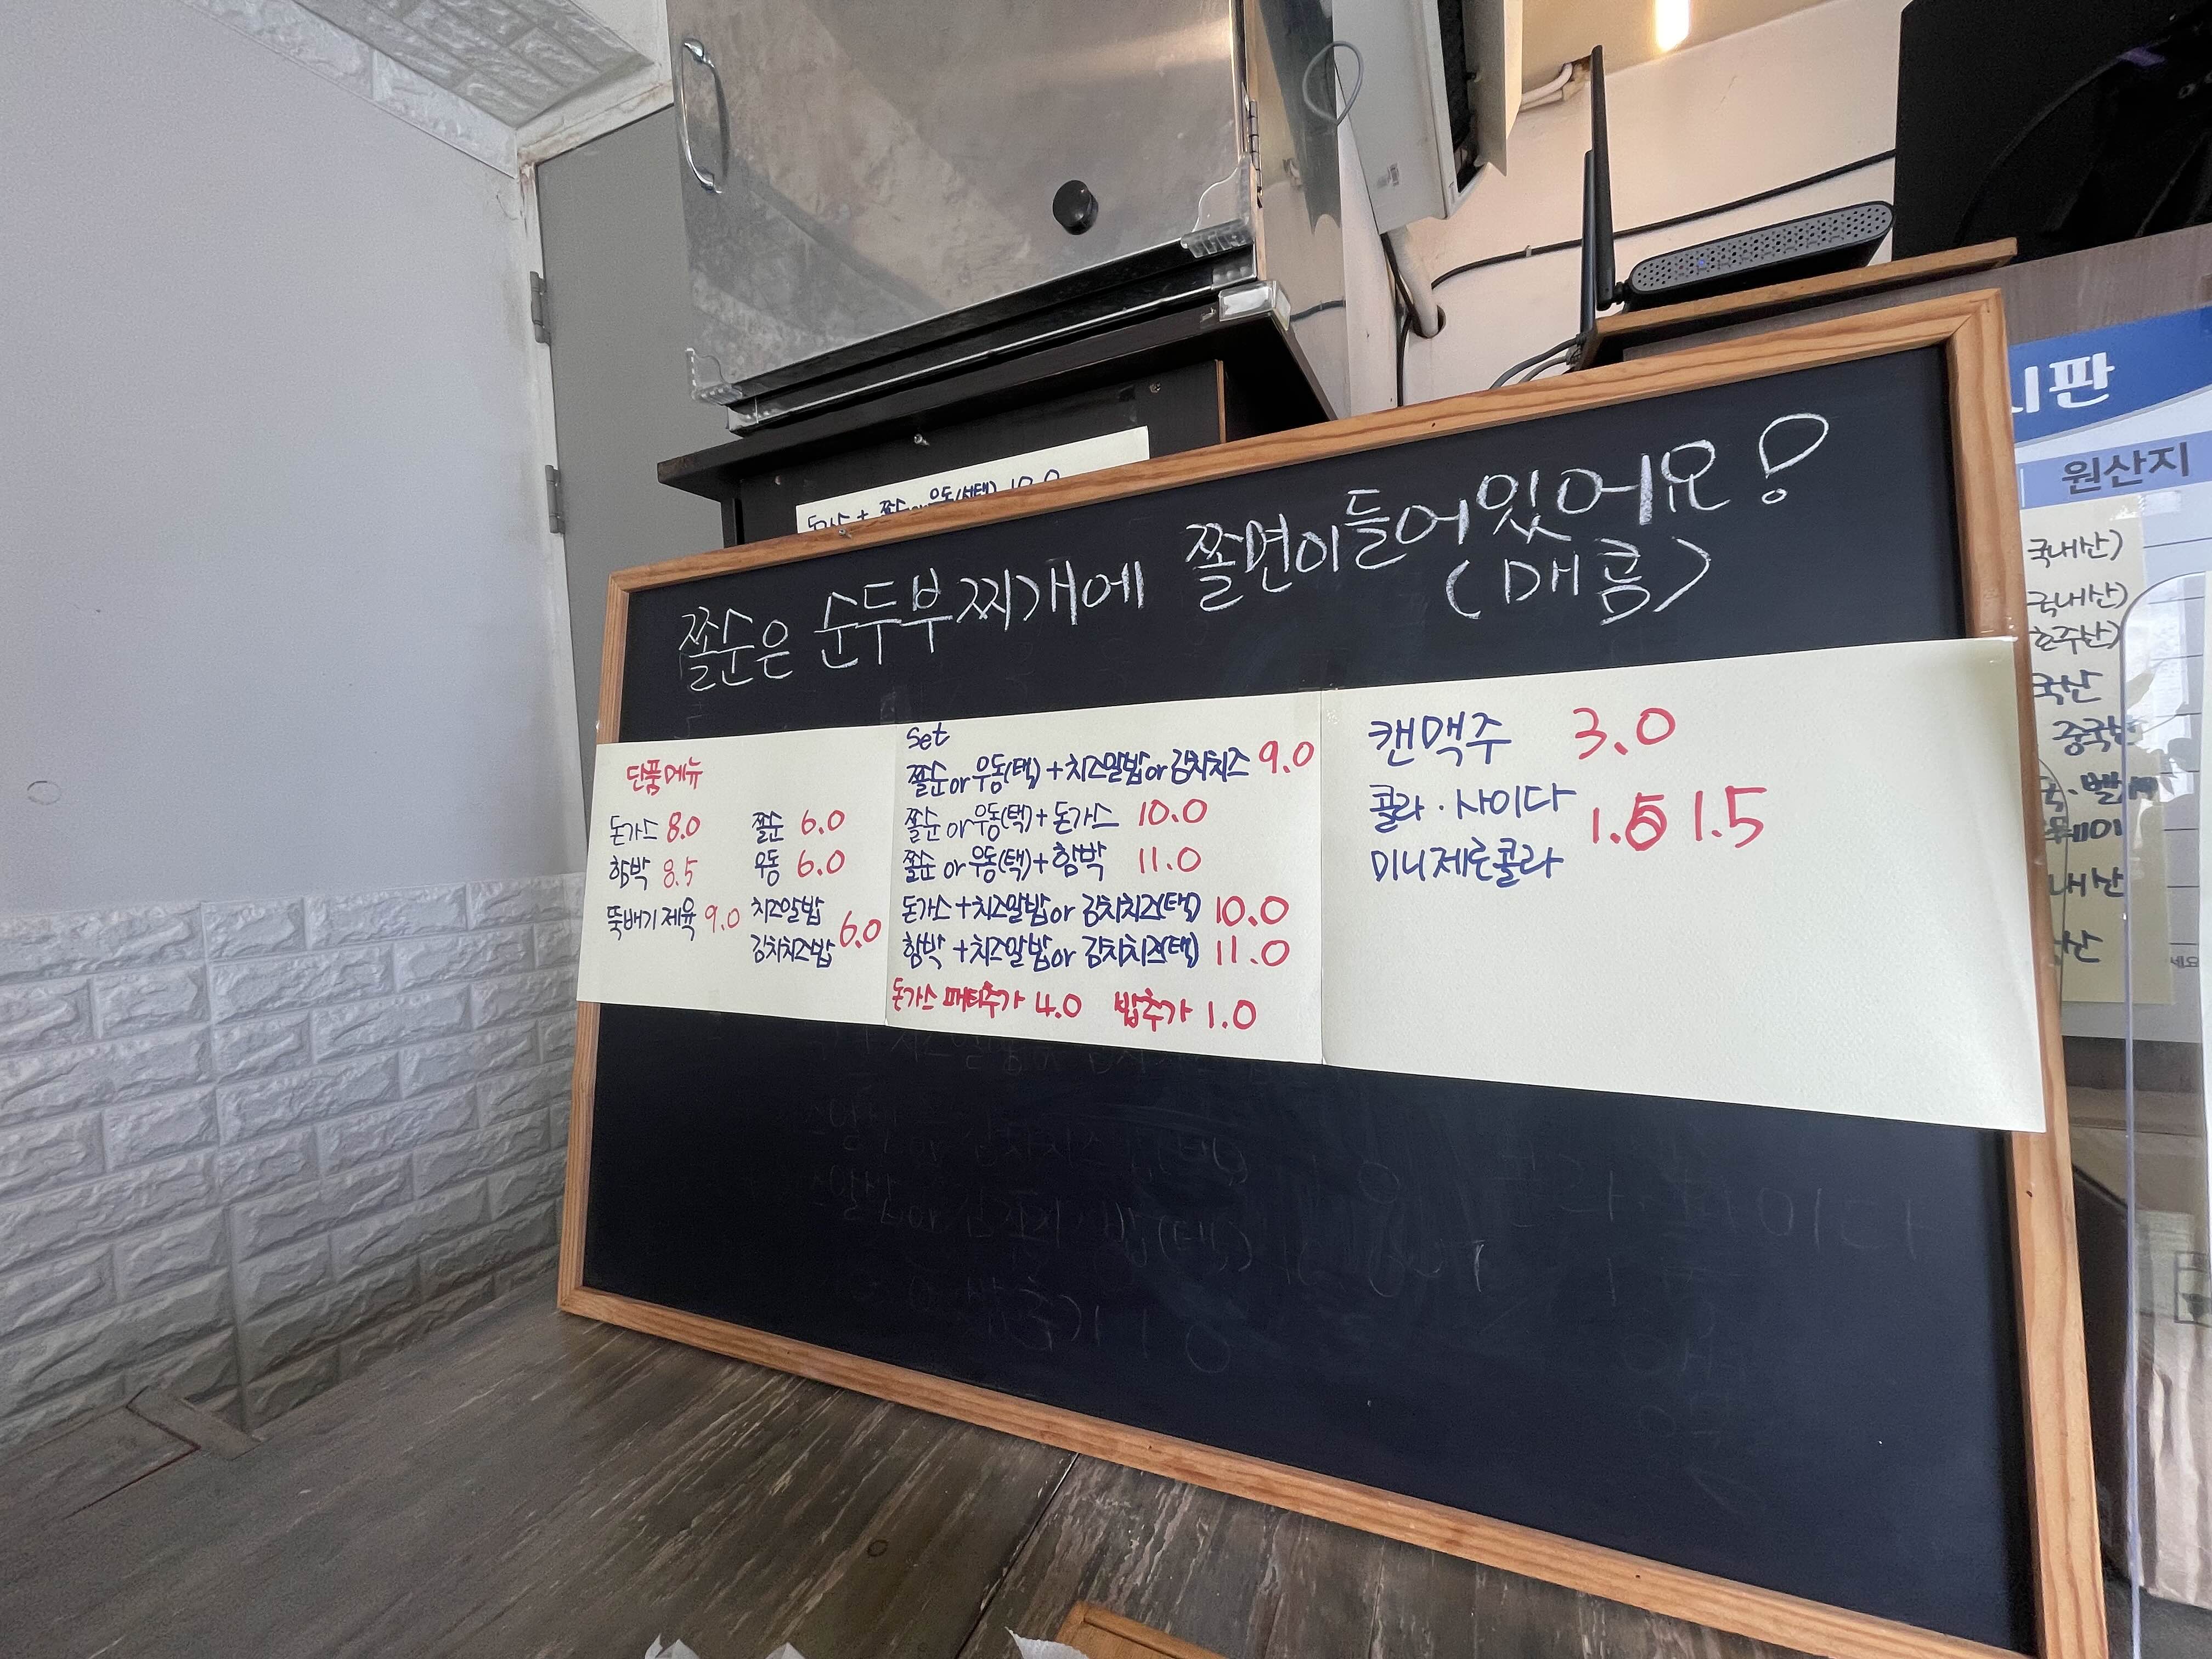 쫄순은 순두부찌개에 쫄면이들어있어요!
(매콤)
단품메뉴
돈가스 8.0
함박 8.5
뚝배기제육 9.0
쫄순 6.0
우동 6.0
치즈알밥
김치치즈밥 6.0
Set
쫄순or우동(택)+치즈알밥or김치치즈 9.0
쫄순or우동(택)+돈가스 10.0
쫄순or우동(택)+함박 11.0
돈가스+치즈알밥or 김치치즈(택) 10.0
함박+치즈알밥or 김치치즈(택) 11.0
돈가스 패티추가 4.0 밥추가 1.0
캔맥주 3.0
콜라·사이다
미니제로콜라 1.5 1.5
시판
원산지
국내산)
국내산)
호주산)
국산
중국산
내산